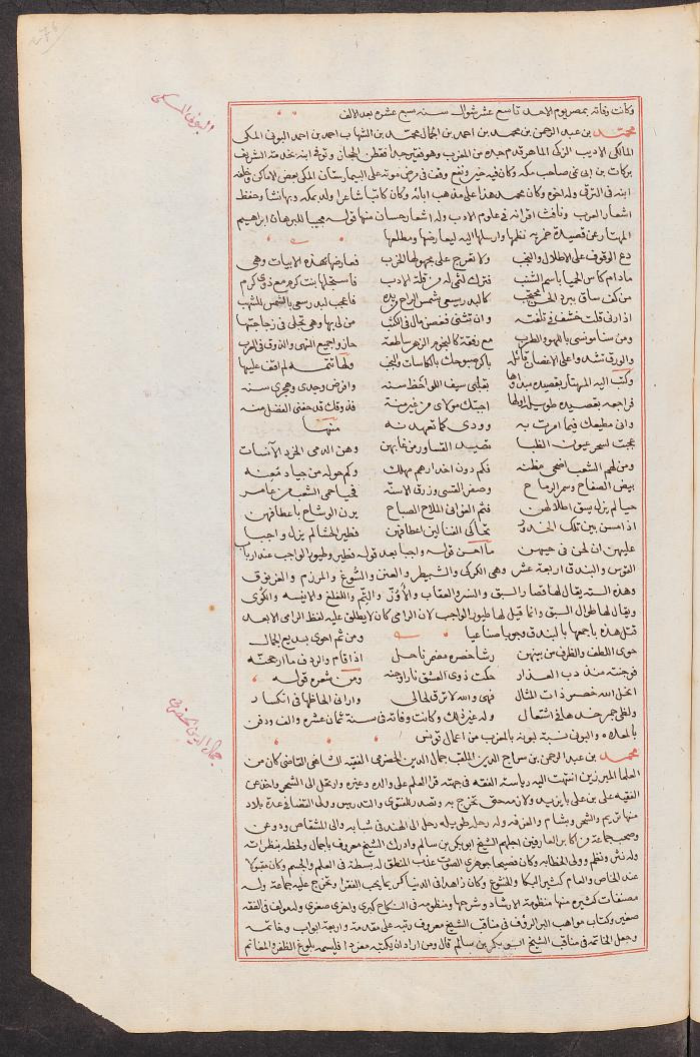 وكانت وفاته بمصر يوم الاحد تاسع عشر شوال سنه سبع عشره بعد الالف
البونى المكى
محمد بن عبد الرحمن بن محمد بن احمد بن الجمال محمد بن الشهاب احمد بن احمد البونى المكى
المالكى الاديب الزكى الماهر قدم جده من المغرب وهو فقير جدا فقطن الحجاز وتوفى ابنه بخدمة الشريف
بركات بن ابى نمى صاحب مكه وكان فيه خير ونفع ووقف فى مرض موته على البيمارستان المكى بعض الاماكن وخلفه
ابنه فى الترقى وله اخوه وكان محمد هذا على مذهب ابائه وكان كاتبا شاعرا ولد بمكه وبها نشا وحفظ
اشعار العرب وفاق اقرانه فى علوم الادب وله اشعار حسان منها قوله مجيبا للبرهان ابراهيم
المهتار عن قصيدة خمريه نظمها وارسلها اليه ليعارضها ومطلعها
دع الوقوف على الاطلال والنجب ولا تعرج على مجهولها الخرب فعارضها بهذه الابيات وهى
مادام كاس الحميا باسم الشنب فترك لثمى له من قلة الادب فاستجلها بنت كرم مع ذوى كرم
من كف ساق ببرد الحسن محتجب كالبدر يسعى بشمس الراح فى يده فاعجب لبدر سعى بالشمس للشهب
اذا رنى قلت خشف فى تلفته وان تثنى فغصن مال فى الكثب من لى بها وهى تجلى فى زجاجتها
ومن سنا مونسى بالهو والطرب مع رفقة كالنجوم الزهر ساطعة حازوا جميع النهى والذوق فى الادب
والورق تشدو على الاغصان قائله باكر صبوحك بالكاسات والنخب ولها تتمه لم اقف عليها
وكتب اليه المهتار بقصيده مبداها بقلبى سيف اللحظ سنه وافرض وجدى وهجرى سنه
فراجعه بقصيده طويله اولها اجبتك مولاى من غير منة فذوقك قد حفنى الفضل منه
وانى مطيعك فيما امرت به وودى كما تعهدنه منها
عجبت لسحر عيون الظبا تصيد القساور من غابهن وهن الدمى الخرد الآنسات
ومن لهم الشعب اضحى مظنه فكم دون اخدارهم مهلك وكم حوله من جياد معنه
بيض الصفاح وسمر الرماح وصفر القسى وزرق الاسنه فيا حمى الشعب من عامر
حيا لم يزل يسق اطلالهن فثم الغوانى الملاح الصباح يزن الوشاح باعطافهن
اذا مسن بين تلك الخدور تحاكى القنا لين اعطافهن فطير الحشا لم يزل واجبا
عليهن ان لحن فى حيهن ما احسن قوله واجبا بعد قوله فطير وطيور الواجب عند ارباب
القوس والبندق اربعة عشر وهى الكركى والشبيطر والعنز والسوغ والمرزم والغرنيق
وهذه السته يقال لها قصار السبق والنسر والعقاب والاوز والتم واللغلغ والانيسه والكوى
ويقال لها طوال السبق وانما قيل لها طيور الواجب لان الرامى كان لا يطلق عليه لفظ الرامى الا بعد
قتل هذه باجمعها بالبندق وجوبا صناعيا ومن ثم احوى بديع الجمال
حوى اللطف والظرف من بينهن رشا خصره مضمر ناحل اذا قام والردف ما ارجحنه
فوجنته منذ دب العذار حكت ذوى العشق نار وجنه ومن شعره قوله
انحل الله خصر ذات المثال فهى والله لا ترق لحالى وارانى الحاظها فى انكسار
ولظى جمر خدها فى اشتعال وله غير ذلك وكانت وفاته فى سنة ثمان عشره والف ودفن
بالمعلاه والبونى نسبة لبونه بالمغرب من اعمال تونس
جمال الدين الحضرمى
محمد بن عبد الرحمن بن سراج الدين الملقب جمال الدين الحضرمى الفقيه الشافعى القاضى كان من
العلما المبرزين انتهت اليه رياسة الفقه فى جهته قرا العلم على والده وغيره وارتحل الى الشحر واخذ عن
الفقيه على بن على بايزيد ولازمه حتى تخرج به وتصدر للفتوى والتدريس وولى القضا فى عدة بلاد
منها تريم والشحر وشبام والغرفه وله رحله طويله رحل الى الهند فى شبابه والى المشقاص ودوعن
وصحب جماعة من اكابر العارفين اجلهم الشيخ ابو بكر بن سالم وادرك الشيخ معروف باجمال ولحظه بنظراته
وله نثر ونظم وولى الخطابه وكان فصيحا جوهرى الصوت عذب المنطق له بسطة فى العلم والجسم وكان مقبولا
عند الخاص والعام كثير البكا والخشوع وكان زاهدا فى الدنيا اكثر ما يحب الفقرا وتخرج عليه جماعة وله
مصنفات كثيره منها منظومة الارشاد وشرحها ومنظومه فى النكاح كبرى واخرى صغرى وله مولف فى الفقه
صغير وكتاب مواهب البر الرؤف فى مناقب الشيخ معروف رتبه على مقدمة واربعة ابواب وخاتمه
وجعل الخاتمه فى مناقب الشيخ ابو بكر بن سالم قال ومن اراد ان يكتبه مفردا فليسمه بلوغ الظفر والمغانم